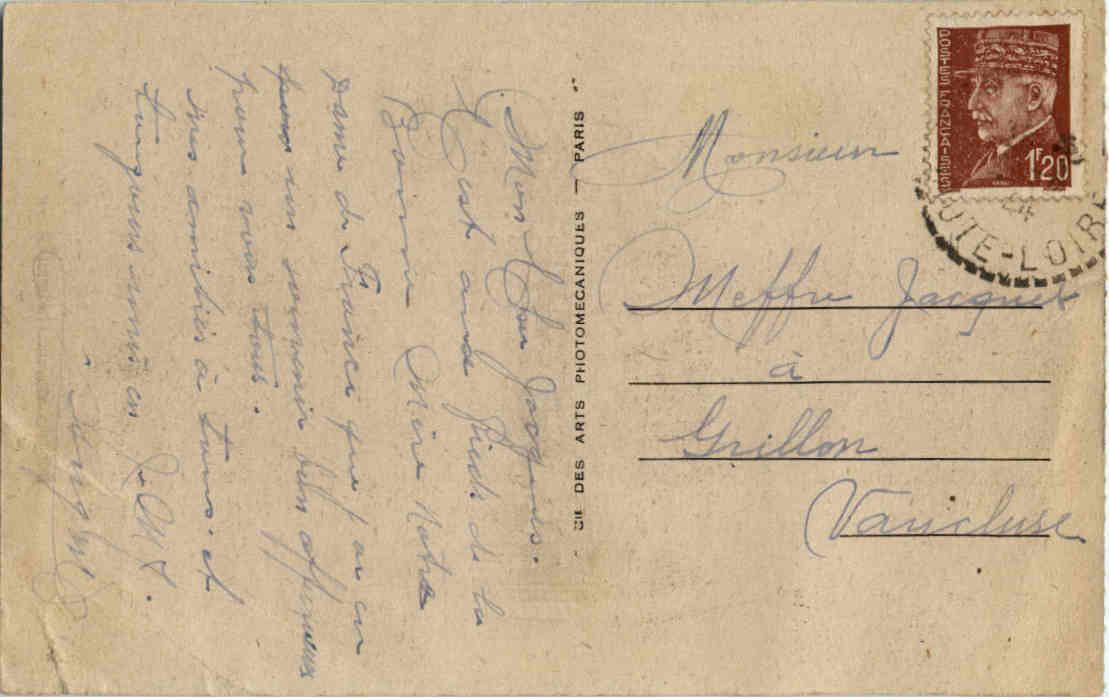 Mon Cher Jacques.
C'est aux pieds de la
Bonne Mère Notre
Dame de France que j'ai eu
pour un souvenir bien affectueux
pour vous tous.
Mes amitiés à tous. et
toujours unis en J. M. J.
Monsieur
Meffre Jacques
à
Grillon
Vaucluse
CIE DES ARTS PHOTOMECANIQUES — PARIS
POSTES FRANÇAISES
1F20
24
UTE-LOIRE